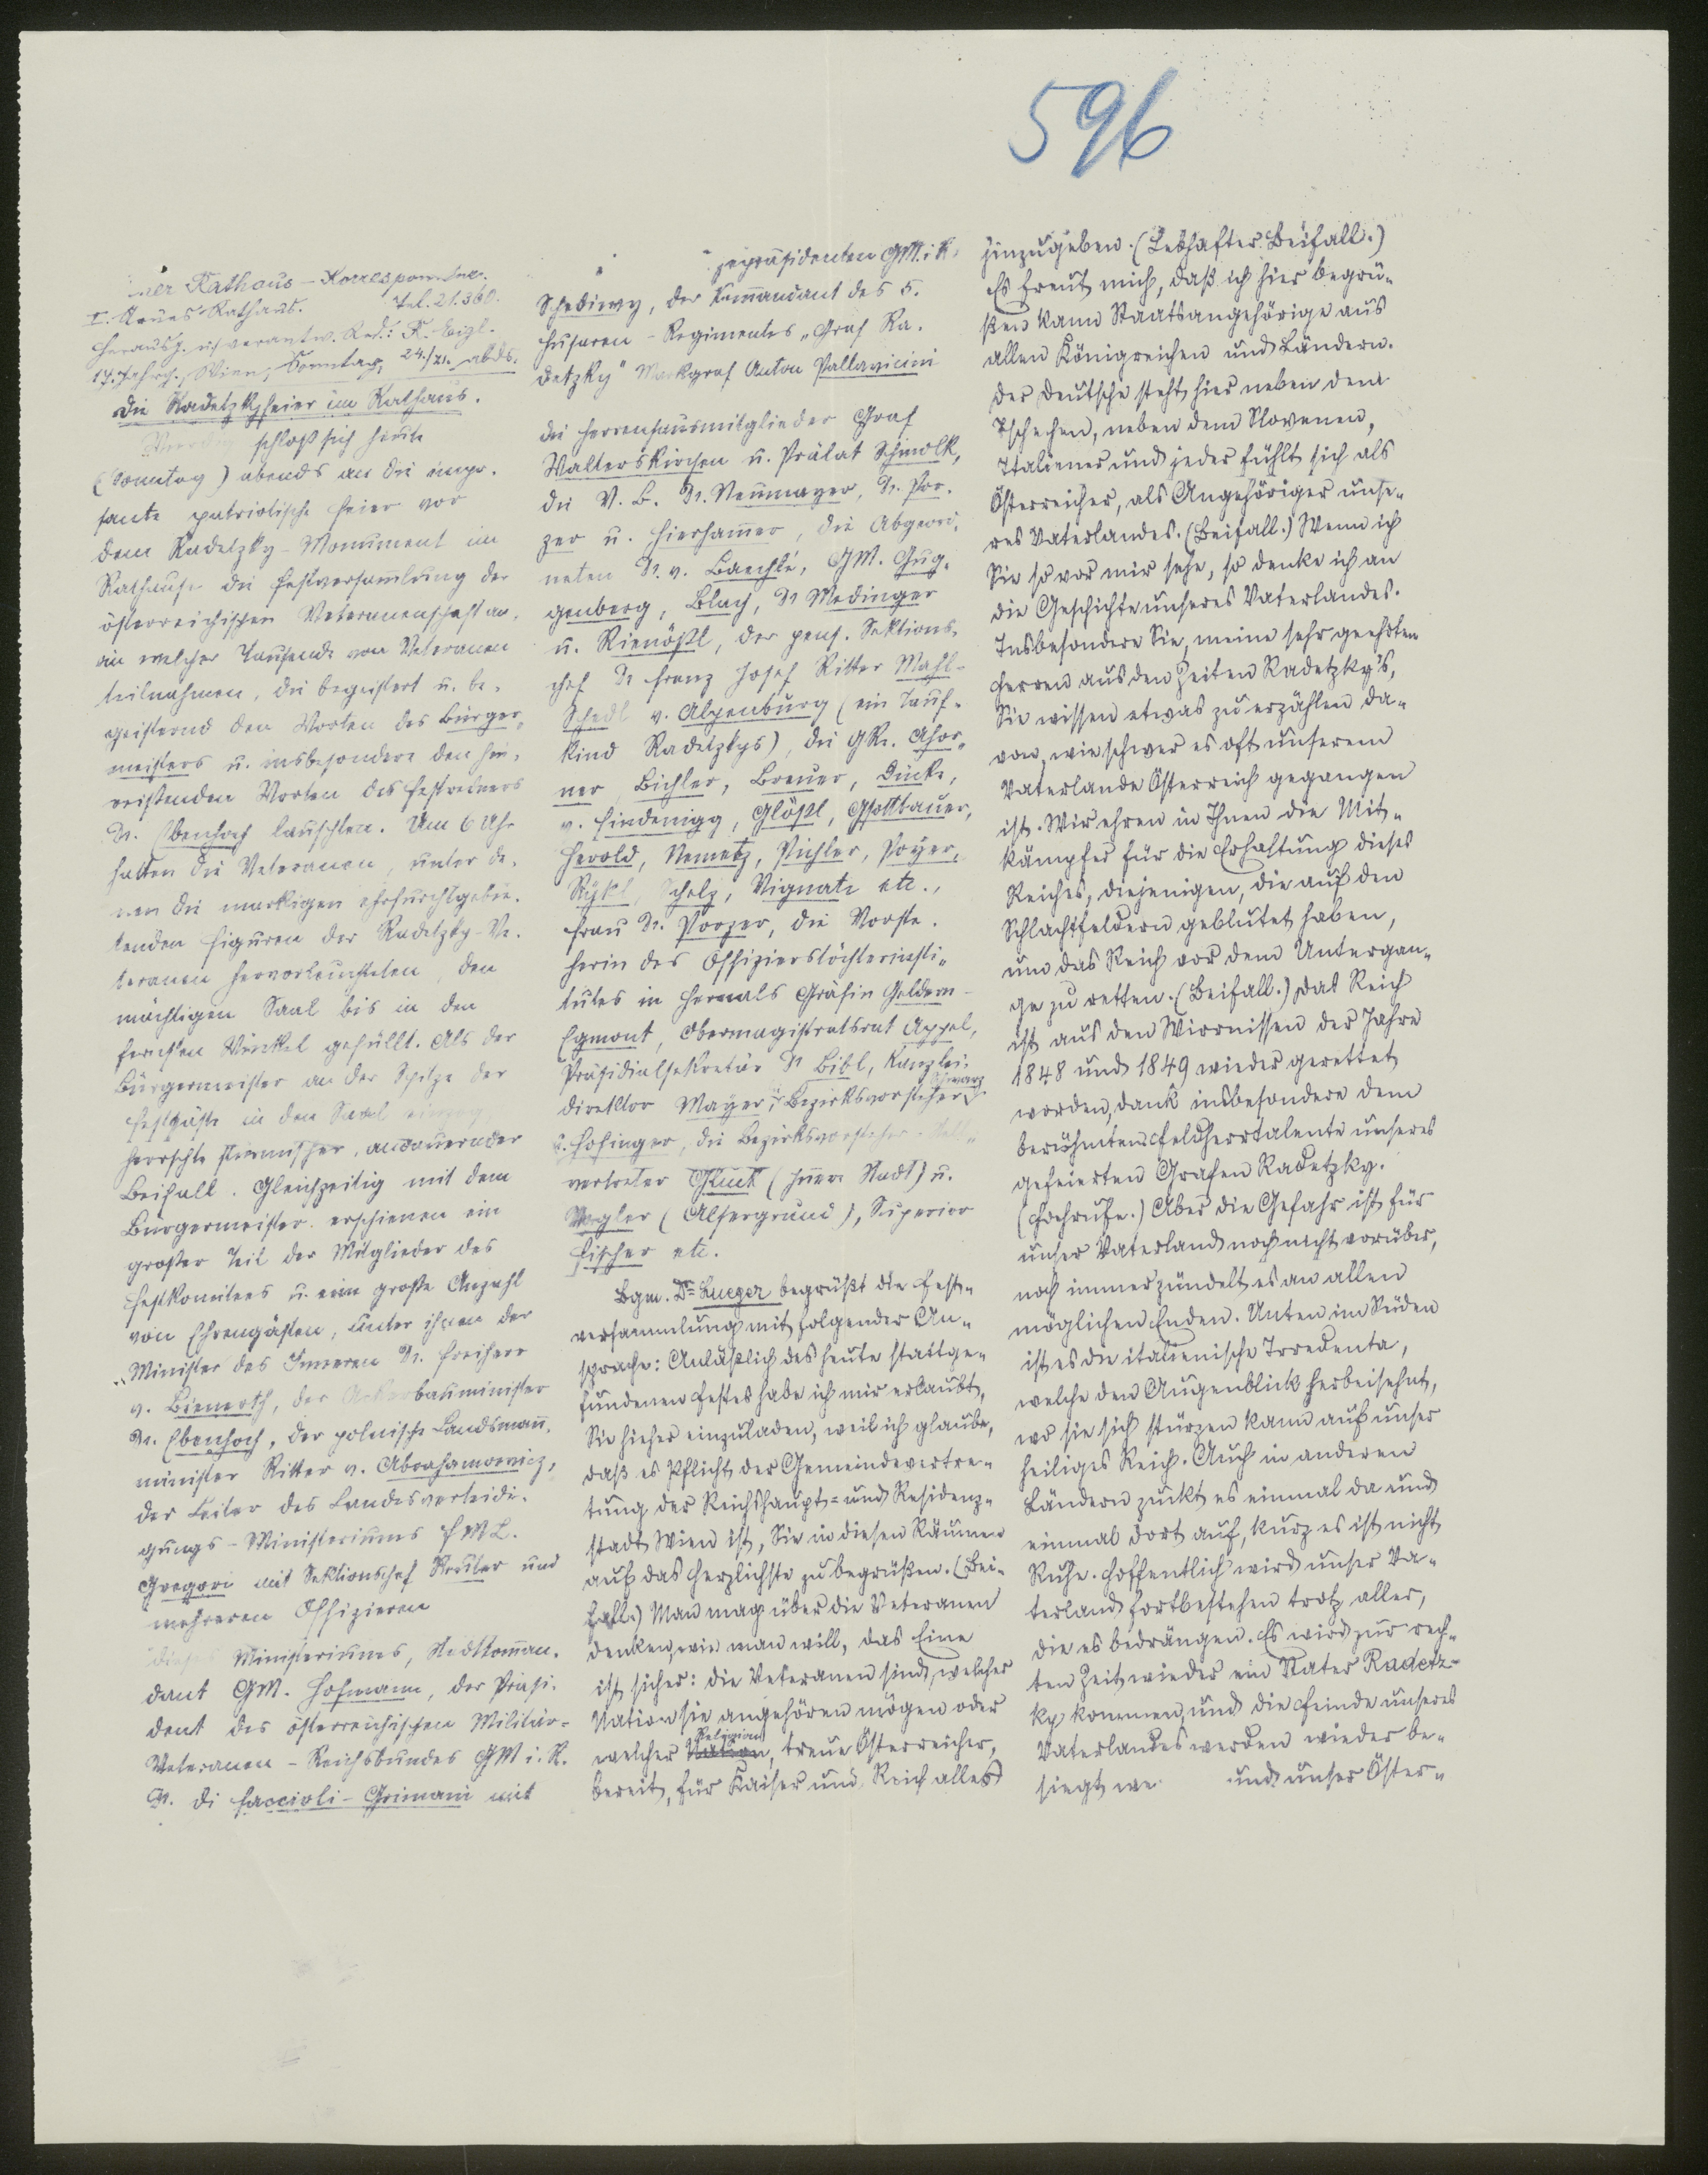 596
Rathaus-Korrespondenz.
I. Neues Rathaus. Tel. 21.360.
Herausg. u. verantw. Red.: R. Eigl.
17. Jahrg., Wien, Sonntag, 24./ abds.
Die Radetzkyfeier im Rathaus.
schloß sich heute
(Sonntag) abends an die impo-
sante patriotische Feier vor
dem Radetzky-Monument im
Rathause die Festversamlung der
österreichischen Veteranenschaft an,
an welcher Tausende von Veteranen
teilnahmen, die begeistert u. be-
geisternd den Worten des Bürger-
meisters u. insbesondere den hin-
reißenden Worten des Festredners
Dr. Ebenhoch lauschten. Um 6 Uhr
hatten die Veteranen, unter de-
nen die markigen ehrfurchtgebie-
tenden Figuren der Radetzky-Ve-
teranen hervorleuchteten, den
mächtigen Saal bis in den
fernsten Winkel gefüllt. Als der
Bürgermeister an der Spitze der
Festgäste in den Saal einzog,
herrschte stürmischer, andauernder
Beifall. Gleichzeitig mit dem
Bürgermeister erschienen ein
großer Teil der Mitglieder des
Festkomitees u. eine große Anzahl
von Ehrengästen, unter ihnen der
Minister des Inneren Dr. Freiherr
v. Bienerth, der Ackerbauminister
Dr. Ebenhoch, der polnische Landsmann-
minister Ritter v. Abrahamowicz,
der Leiter des Landesverteidi-
gungs-Ministeriums FML.
Gregori mit Sektionschef Reuter und
mehreren Offizieren
dieses Ministeriums, Stadtkoman-
dant GM. Hofmann, der Präsi-
dent des österreichischen Militär-
Veteranen-Reichsbundes GM i. R.
Dr. di Faccioli-Grimani mit
zepräsidenten GM. i. R.
Schediwy, der Kommandant des 5.
Husaren-Regimentes „Graf Ra-
detzky" Markgraf Anton Pallavicini
die Herrenhausmitglieder Graf
Walterskirchen u. Prälat Schmolk,
die V. B. Dr. Neumayer, Dr. Por-
zer u. Hierhammer, die Abgeord-
neten Dr. v. Baechlé, GM. Gug-
genberg, Bloy, Dr. Medinger
u. Rienößl, der pens. Sektions-
chef Dr. Franz Josef Ritter Mahl-
Schedl v. Alpenburg (ein Tauf-
kind Radetzkys), die GRe. Ahor-
ner, Bichler, Breuer, Dücke,
v. Findenigg, Glößl, Gsottbauer,
Herold, Nemetz, Pichler, Poyer,
Rykl, Scholz, Vignati etc.,
Frau Dr. Porzer, die Vorste-
herin des Offizierstöchterinsti-
tutes in Hernals Gräfin Geldern-
Egmont, Obermagistratsrat Appel,
Präsidialsekretär Dr. Bibl, Kanzlei-
direktor Mayer, Bezirksvorsteher Schwarz
u. Hofinger, die Bezirksvorsteher-Stell-
vertreter Gluck (Innere Stadt) u.
Wagler (Alsergrund), Superior
Fischer etc.
Bgm. Dr. Lueger begrüßt die Fest-
versammlung mit folgender An-
sprache: Anläßlich des heute stattge-
fundenen Festes habe ich mir erlaubt,
Sie hieher einzuladen, weil ich glaube,
daß es Pflicht der Gemeindevertre-
tung der Reichshaupt- und Residenz-
stadt Wien ist, Sie in diesen Räumen
auf das Herzlichste zu begrüßen. (Bei-
fall.) Man mag über die Veteranen
denken, wie man will, das Eine
ist sicher: die Veteranen sind, welcher
Nation sie angehören mögen oder
welcher Nation Religion, treue Österreicher,
bereit, für Kaiser und Reich alles
hinzugeben. (Lebhafter Beifall.)
Es freut mich, daß ich hier begrü-
ßen kann Staatsangehörige aus
allen Königreichen und Ländern.
Der Deutsche steht hier neben dem
Tschechen, neben dem Slovenen,
Italiener und jeder fühlt sich als
Österreicher, als Angehöriger unse-
res Vaterlandes. (Beifall.) Wenn ich
Sie so vor mir sehe, so denke ich an
die Geschichte unseres Vaterlandes.
Insbesondere Sie, meine sehr geehrten
Herren aus den Zeiten Radetzky's,
Sie wissen etwas zu erzählen da-
von, wie schwer es oft unserem
Vaterlande Österreich gegangen
ist. Wir ehren in Ihnen die Mit-
kämpfer für die Erhaltung dieses
Reiches, diejenigen, die auf den
Schlachtfeldern geblutet haben,
um das Reich vor dem Untergan-
ge zu retten. (Beifall.) Das Reich
ist aus den Wirrnissen der Jahre
1848 und 1849 wieder gerettet
worden, dank insbesondere dem
berühmten Feldherrtalente unseres
gefeierten Grafen Radetzky.
(Hochrufe.) Aber die Gefahr ist für
unser Vaterland noch nicht vorüber,
noch immer zündelt es an allen
möglichen Enden. Unten im Süden
ist es die italienische Irredenta,
welche den Augenblick herbeisehnt,
wo sie sich stürzen kann auf unser
heiliges Reich. Auch in anderen
Ländern zuckt es einmal da und
einmal dort auf, kurz es ist nicht
Ruhe. Hoffentlich wird unser Va-
terland fortbestehen trotz aller,
die es bedrängen. Es wird zur rech-
ten Zeit wieder ein Vater Radetz-
ky kommen und die Feinde unseres
Vaterlandes werden wieder be-
siegt we und unser Öster-